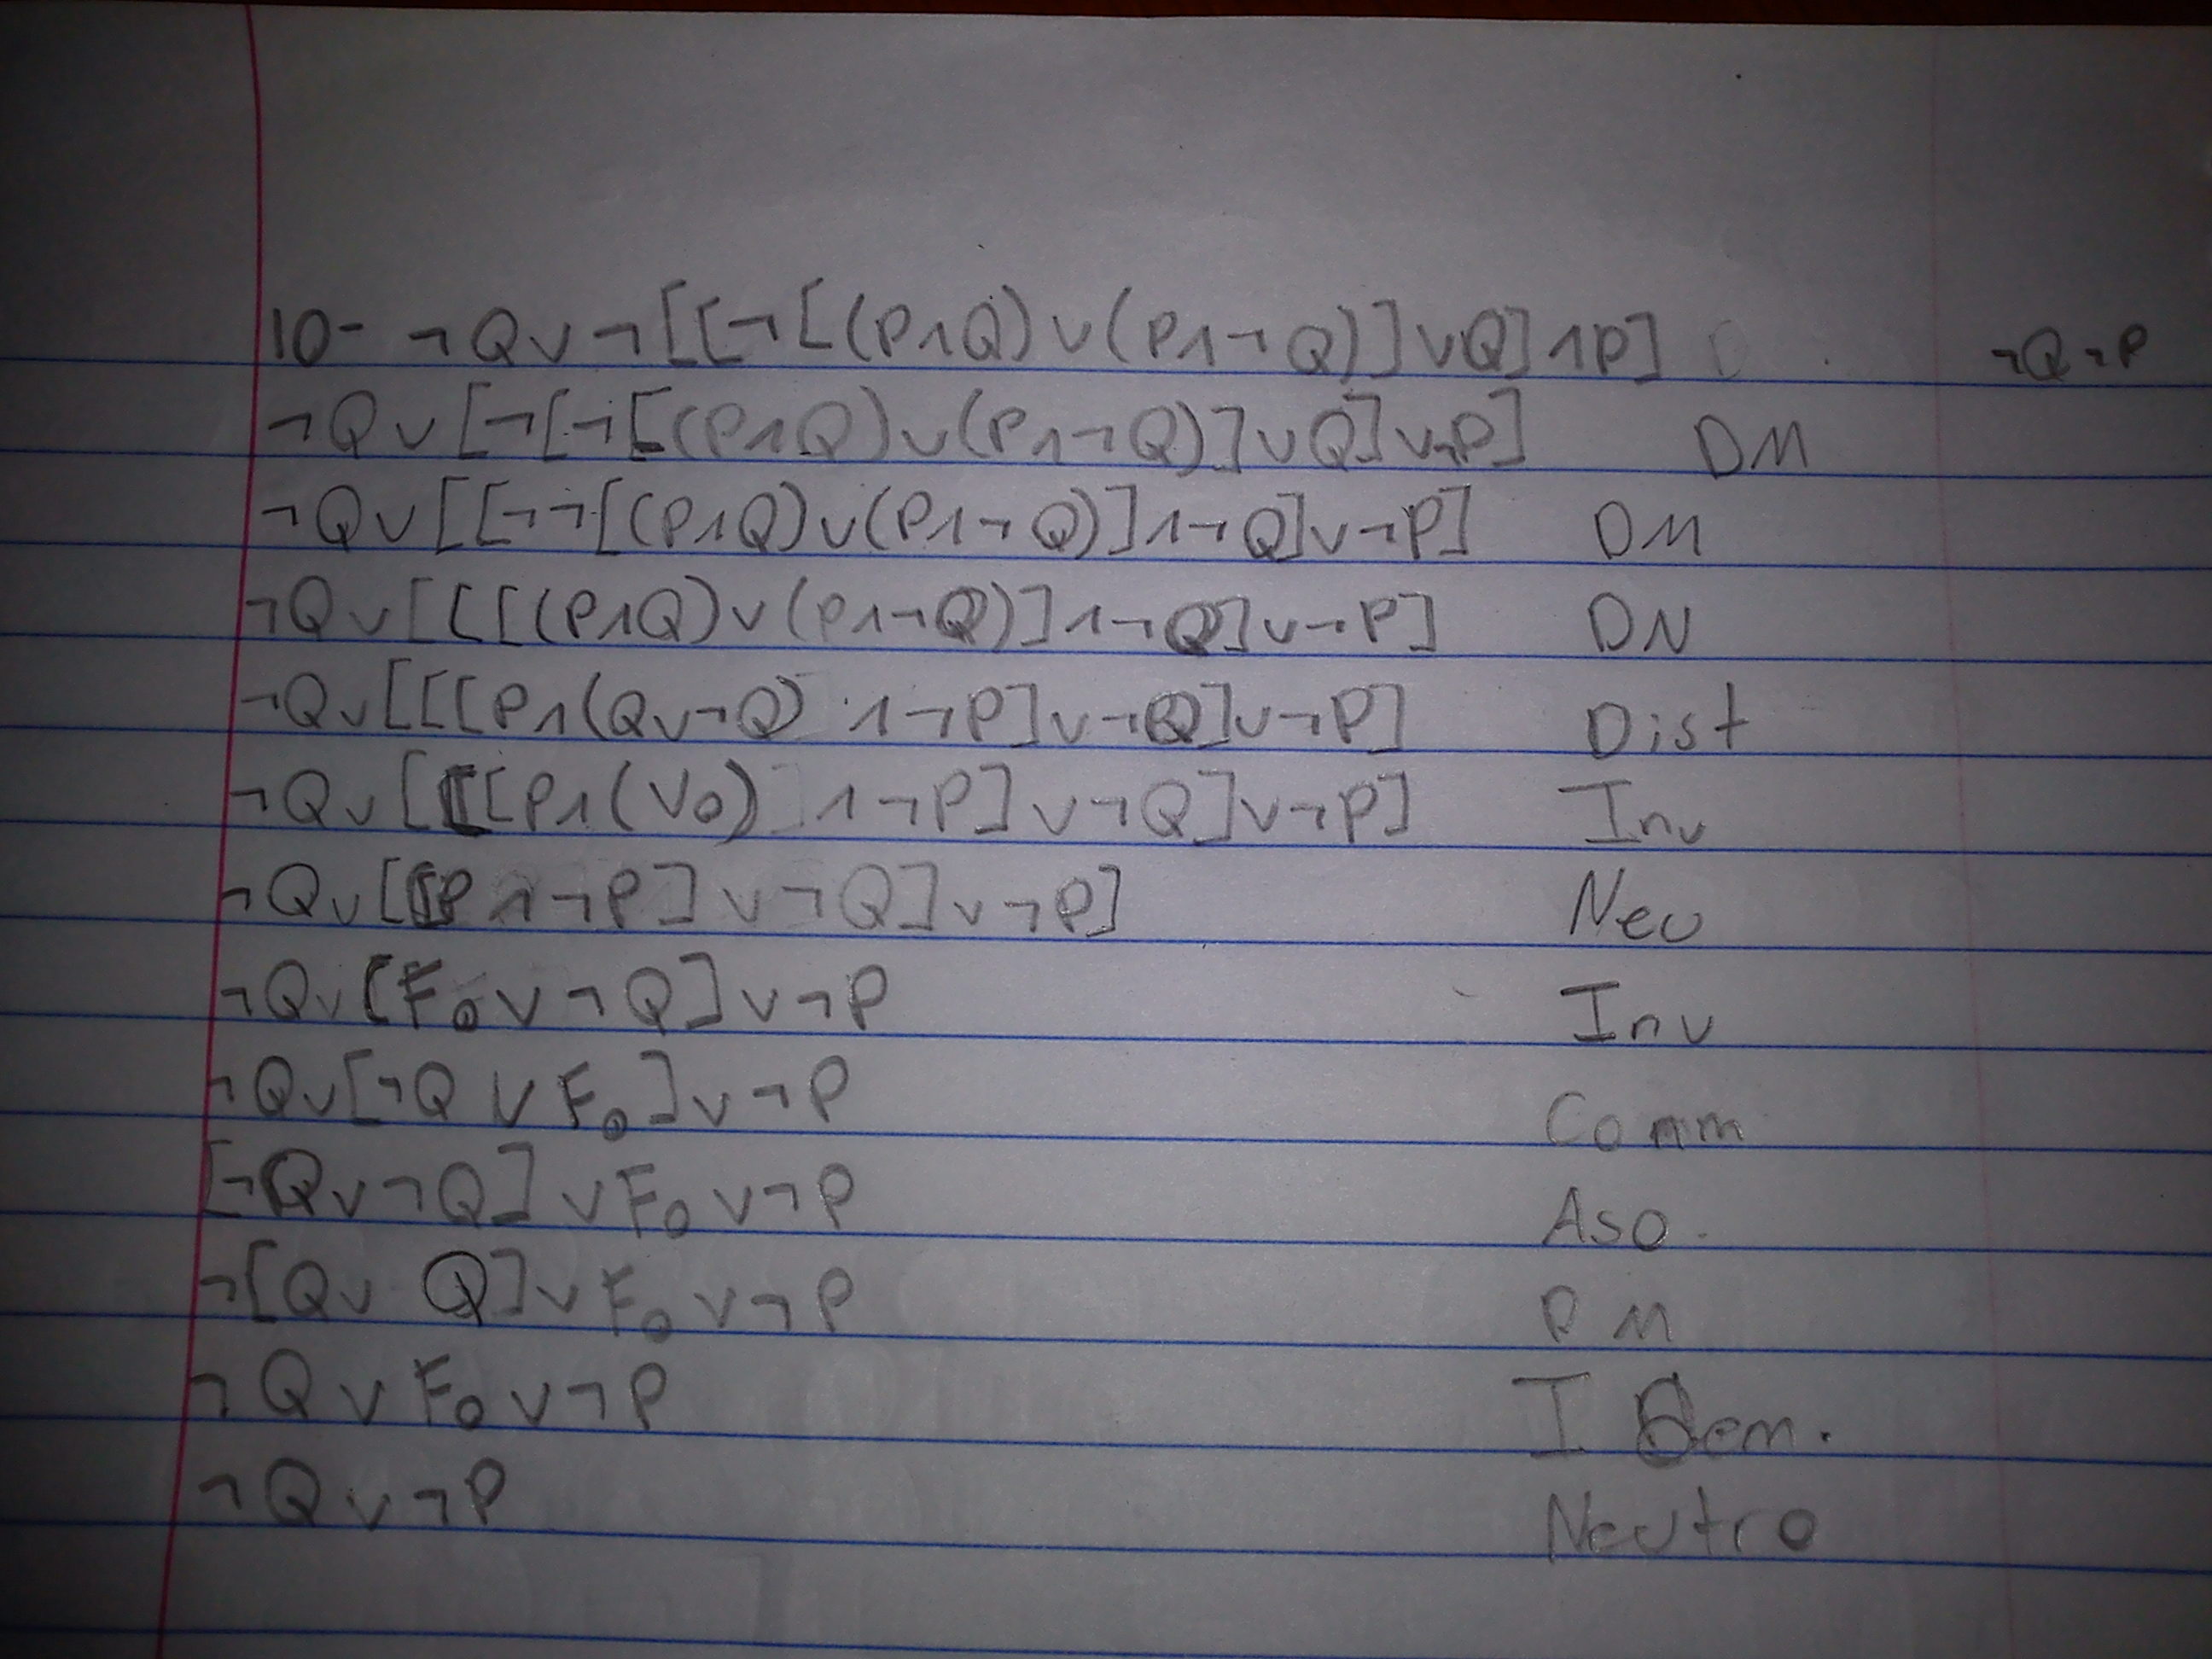 10- ¬Q∨¬[[¬[(P∧Q)∨(P∧¬Q)]∨Q]∧P] ¬Q¬P
¬Q∨[¬[¬[(P∧Q)∨(P∧¬Q)]∨Q]∨¬P] DM
¬Q∨[[¬¬[(P∧Q)∨(P∧¬Q)]∧¬Q]∨¬P] DM
¬Q∨[[[(P∧Q)∨(P∧¬Q)]∧¬Q]∨¬P] DN
¬Q∨[[[P∧(Q∨¬Q) ∧¬P]∨¬Q]∨¬P] Dist
¬Q∨[[[P∧(V₀)] ∧¬P]∨¬Q]∨¬P] Inv
¬Q∨[[P∧¬P]∨¬Q]∨¬P] Neu
¬Q∨[F₀∨¬Q]∨¬P Inv
¬Q∨[¬Q∨F₀]∨¬P Comm
[¬Q∨¬Q]∨F₀∨¬P Aso.
¬[Q∨Q]∨F₀∨¬P DM
¬Q∨F₀∨¬P IDem.
¬Q∨¬P Neutro